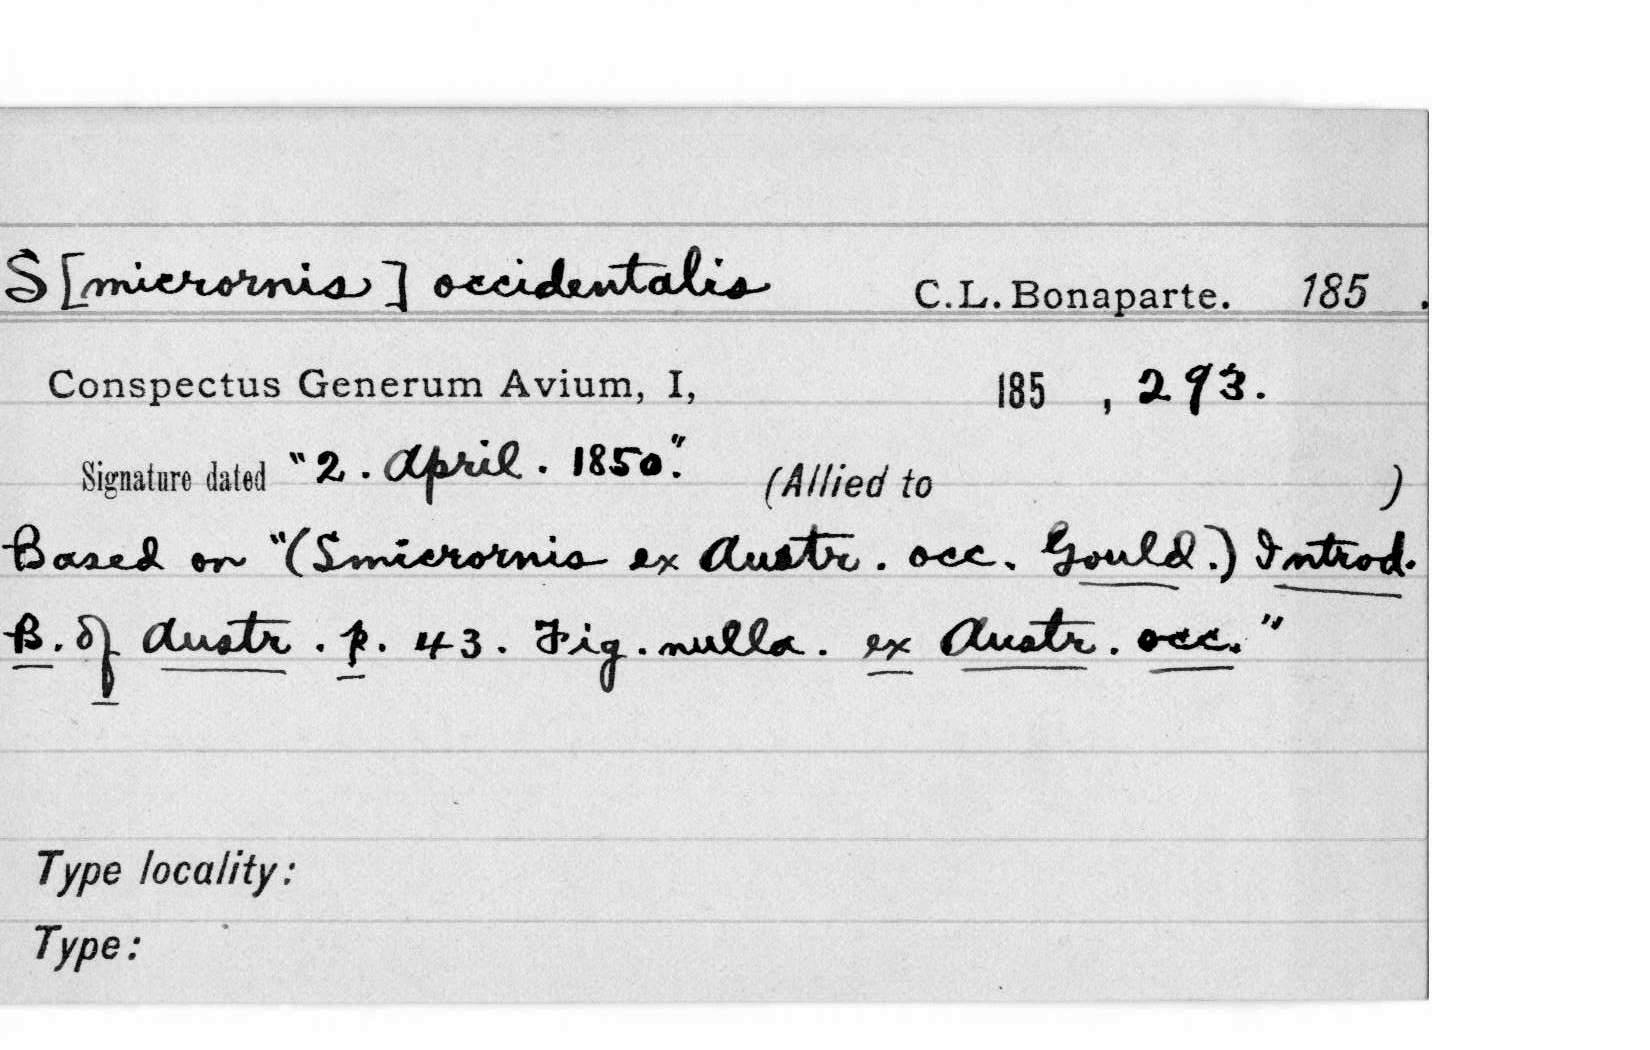 S[micrornis] occidentalis C.L. Bonaparte. 185 .
Conspectus Generum Avium, I, 185 , 293.
Signature dated "2. April. 1850." (Allied to )
Based on "(Smicrornis ex Austr. occ. Gould.) Introd.
B. of Austr. p. 43. Fig. nulla. ex Austr. occ."
Type locality:
Type: